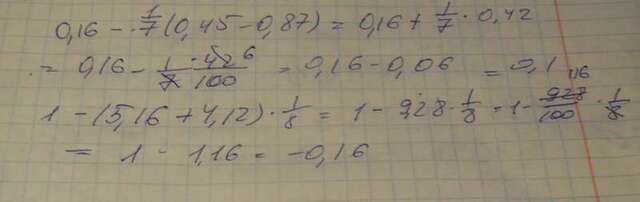 0,16 - 1/7(0,45-0,87) = 0,16 + 1/7 · 0,42
= 0,16 - 1/7 · 42/100 6 = 0,16-0,06 = 0,1
1 - (5,16 + 4,12) · 1/8 = 1 - 9,28 · 1/8 = 1 - 928/100 116 · 1/8
= 1 - 1,16 = -0,16